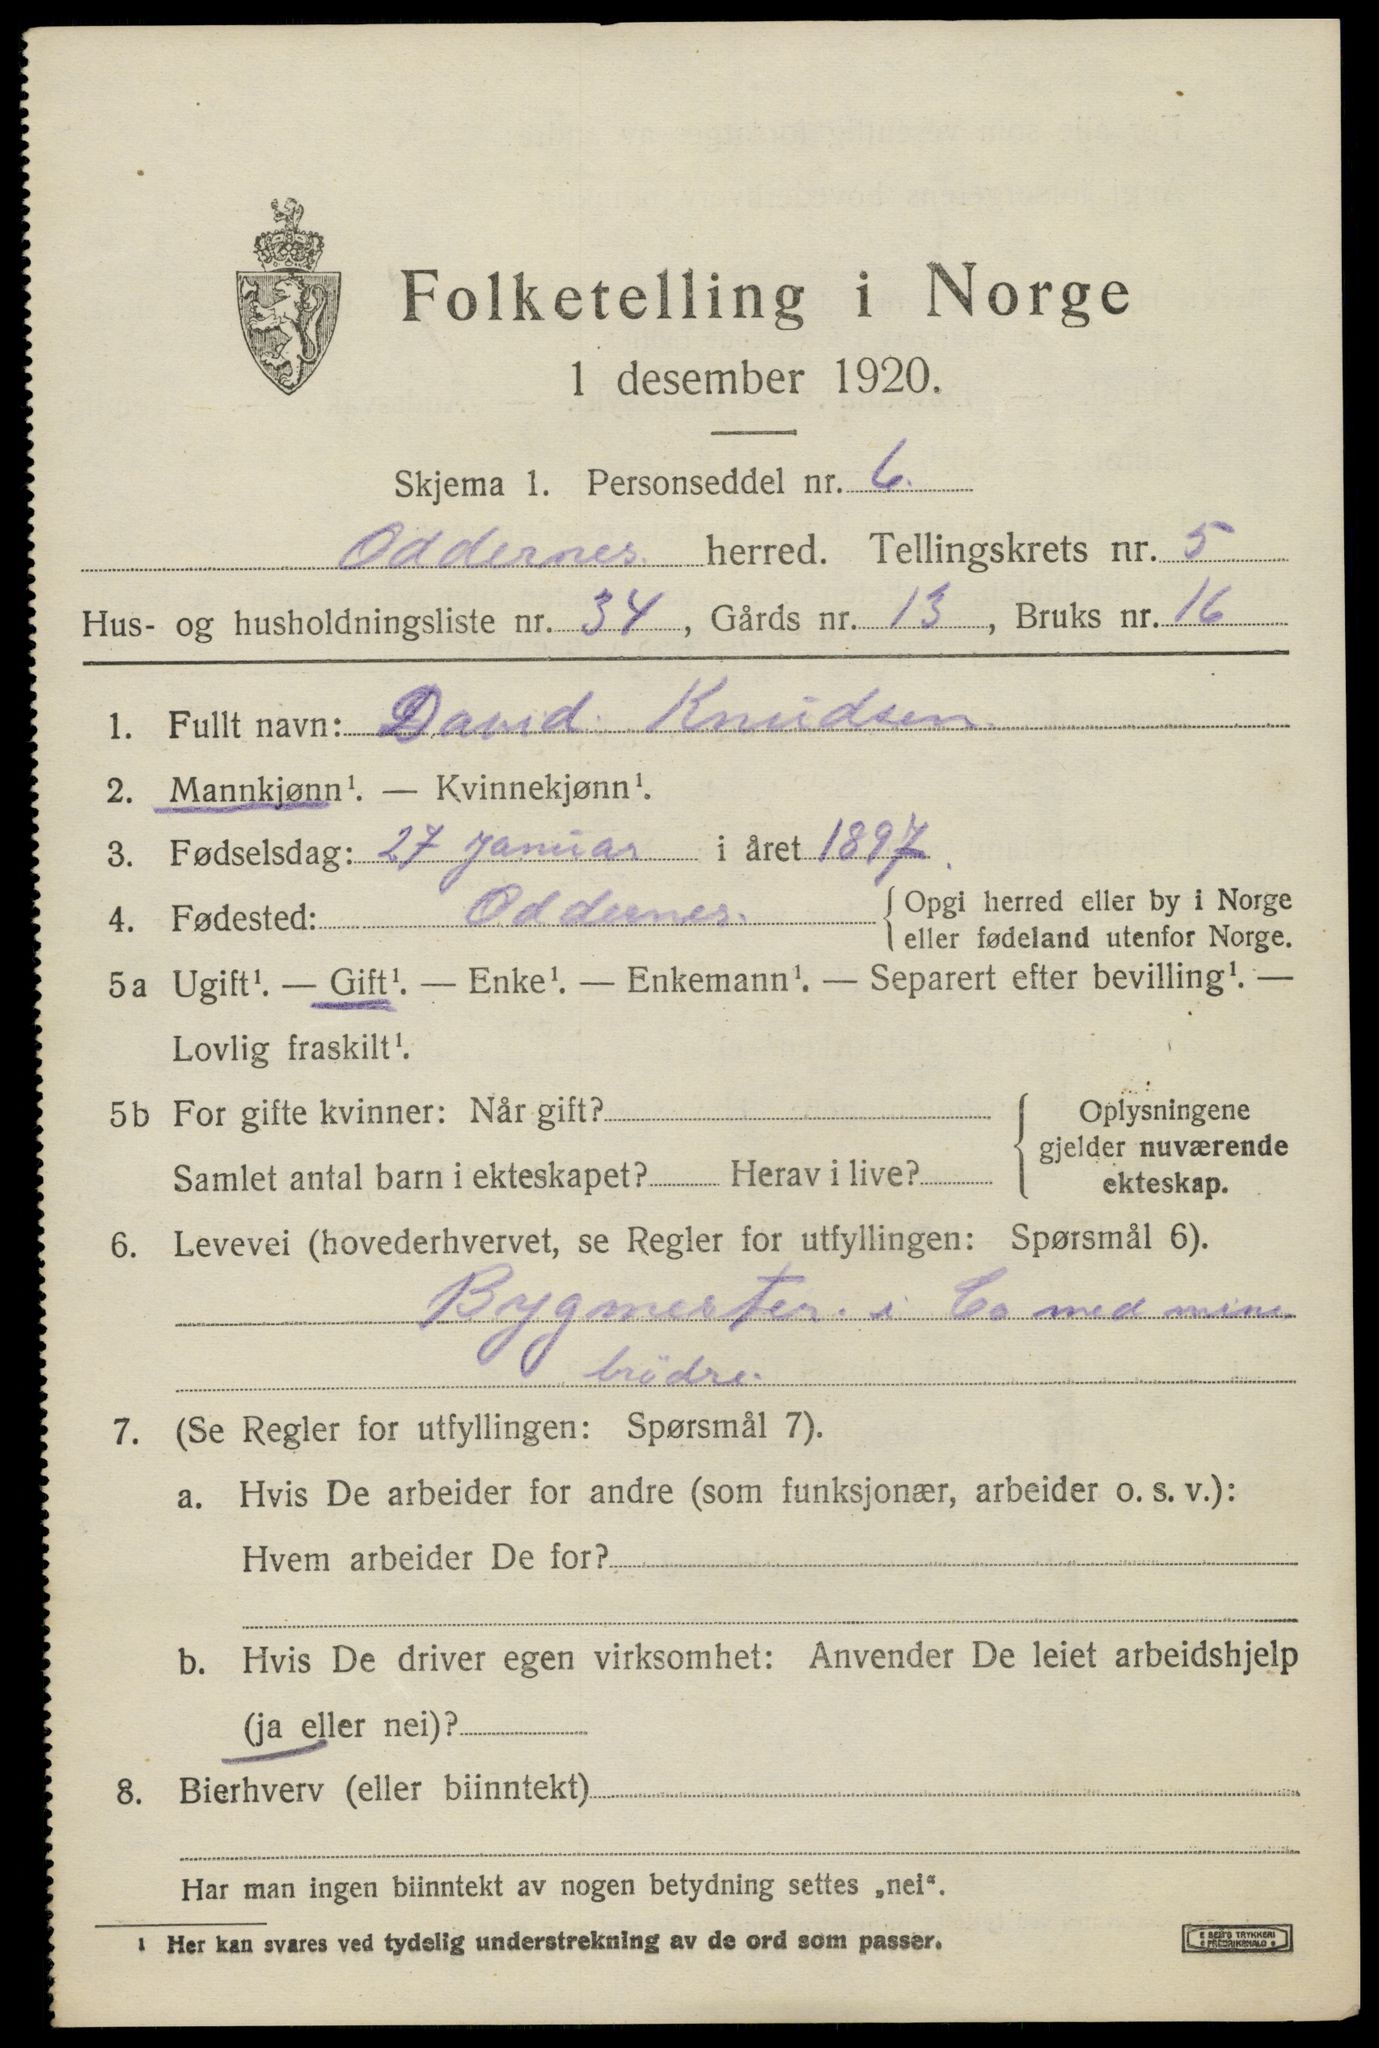 Folketelling i Norge
1 desember 1920.
Skjema 1. Personseddel nr. 6.
Oddernes. herred. Tellingskrets nr. 5
Hus- og husholdningsliste nr. 34, Gårds nr. 13, Bruks nr. 16
1. Fullt navn: David Knudsen.
2. Mannkjønn¹. — Kvinnekjønn¹.
3. Fødselsdag: 27 januar i året 1897.
4. Fødested: Oddernes. { Opgi herred eller by i Norge
eller fødeland utenfor Norge.
5a Ugift¹. — Gift¹. — Enke¹. — Enkemann¹. — Separert efter bevilling¹. —
Lovlig fraskilt¹.
5b For gifte kvinner: Når gift?
Samlet antal barn i ekteskapet? Herav i live?
Oplysningene
gjelder nuværende
ekteskap.
6. Levevei (hovederhvervet, se Regler for utfyllingen: Spørsmål 6).
Bygmester. i Co med mine
brödre.
7. (Se Regler for utfyllingen: Spørsmål 7).
a. Hvis De arbeider for andre (som funksjonær, arbeider o. s. v.):
Hvem arbeider De for?
b. Hvis De driver egen virksomhet: Anvender De leiet arbeidshjelp
(ja eller nei)?
8. Bierhverv (eller biinntekt)
Har man ingen biinntekt av nogen betydning settes „nei“.
1 Her kan svares ved tydelig understrekning av de ord som passer.
E SEM'S TRYKKERI
FREDRIKSHALD